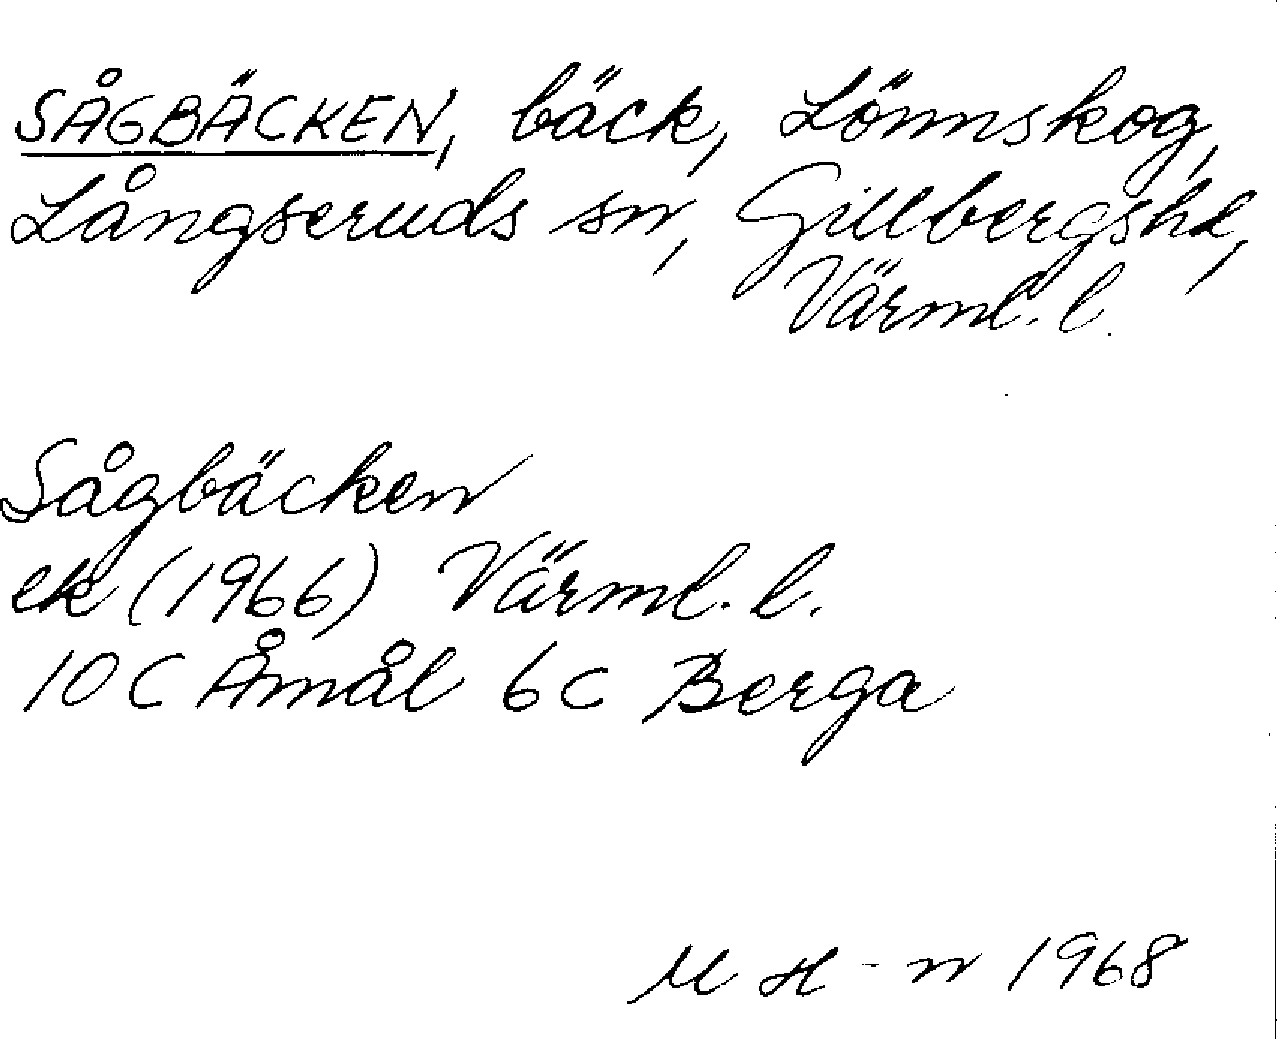 SÅGBÄCKEN, bäck, Lönnskog,
Långseruds sn, Gillbergshd,
Värml. l.
Sågbäcken
ek (1966) Värml. l.
10 C Åmål 6 c Berga
M H - n 1968